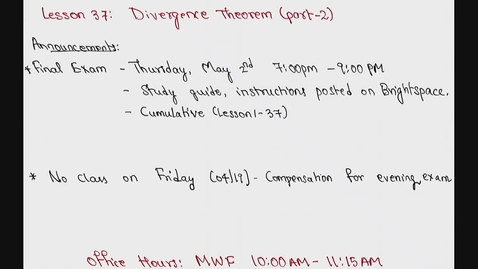 Lesson 37: Divergence Theorem (part-2)
Announcements:
* Final Exam - Thursday, May 2nd 7:00pm - 9:00 PM
- Study guide, instructions posted on Brightspace.
- Cumulative (Lesson 1-37)
* No Class on Friday (04/19) - Compensation for evening exam
Office Hours: MWF 10:00AM - 11:15AM